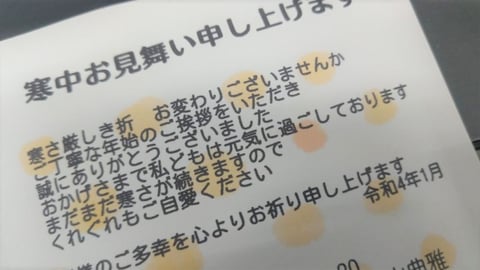 寒中お見舞い申し上げます
寒さ厳しき折　お変わりございませんか
ご丁寧な年始のご挨拶をいただき
誠にありがとうございました
おかげさまで私どもは元気に過ごしております
まだまだ寒さが続きますので
くれぐれもご自愛ください
様のご多幸を心よりお祈り申し上げます
令和4年1月
典雅